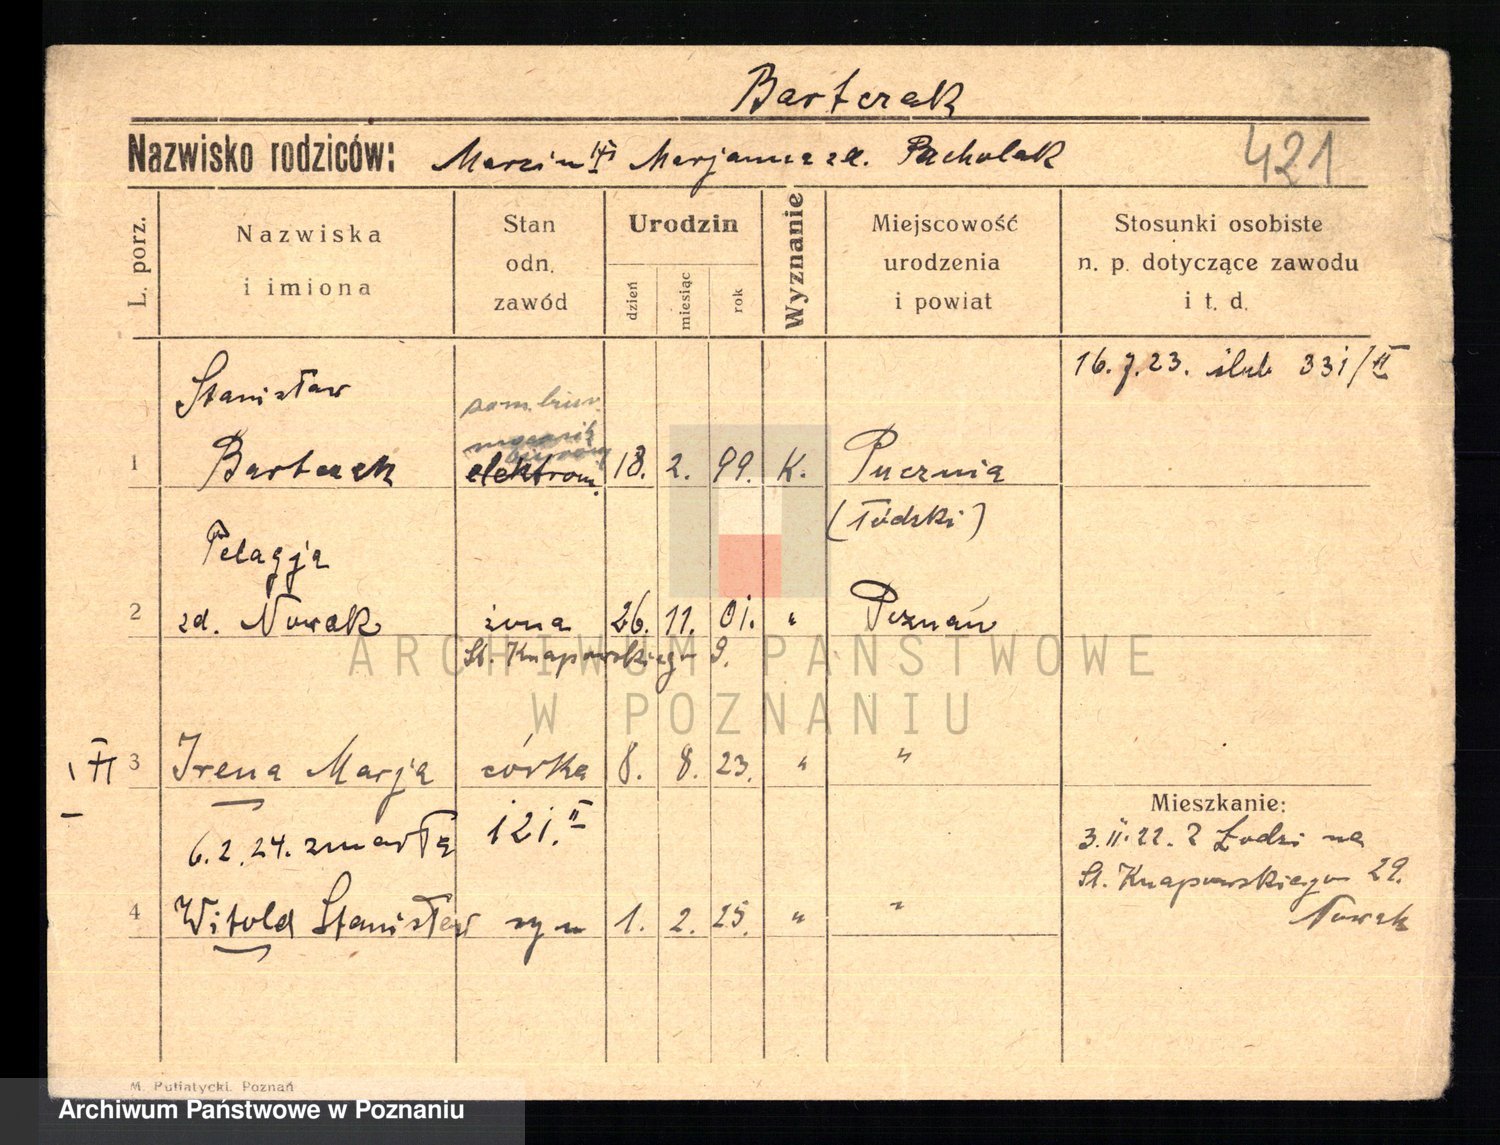 Bartczak
Nazwisko rodziców: Marcin Marjanna zd. Pacholak
421
L. porz.
Nazwiska
i imiona
Stan
odn.
zawód
Urodzin
dzień
miesiąc
rok
Wyznanie
Miejscowość
urodzenia
i powiat
Stosunki osobiste
n. p. dotyczące zawodu
i t. d.
16.7.23. ślub 331/II
Stanisław
pom. biur.
biurowy
1 Bartczak elektrom. 18. 2. 99. K. Pucznia
(Łódzki)
Pelagja
2 zd. Nowak żona 26. 11. 01. " Poznań
Śt. Knapowskiego 9.
3 Irena Marja córka 8. 8. 23. " "
6.2.24. zmarła 121.II
Mieszkanie:
3.II.22. z Łodzi na
Śt. Knapowskiego 29.
Nowak
4 Witold Stanisław syn 1. 2. 25. " "
ARCHIWUM PAŃSTWOWE
W POZNANIU
M. Putiatycki. Poznań
Archiwum Państwowe w Poznaniu